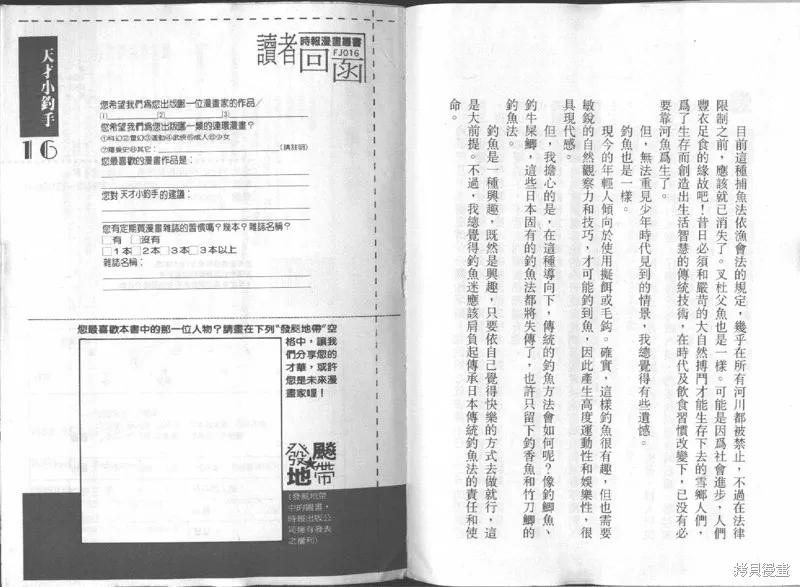 天才小釣手
16
讀者回函
時報漫畫叢書
FJ016
您希望我們為您出版哪一位漫畫家的作品/
(1) (2) (3)
您希望我們為您出版哪一類的連環漫畫?
①科幻②靈幻③運動④武俠⑤成人⑥少女
⑦歷史⑧其它: (請註明)
您最喜歡的漫畫作品是:
您對 天才小釣手的 建議:
您有定期買漫畫雜誌的習慣嗎?幾本?雜誌名稱?
□有 □沒有
□1本□2本□3本□3本以上
雜誌名稱:
您最喜歡本書中的那一位人物?請畫在下列"發飈地帶"空
格中,讓我
們分享您的
才華,或許
您是未來漫
畫家喔!
發飈地帶
(發飈地帶
中的圖畫,
時報出版公
司擁有發表
之權利)
目前這種捕魚法依漁會法的規定,幾乎在所有河川都被禁止,不過在法律
限制之前,應該就已消失了。叉杜父魚也是一樣。可能是因爲社會進步,人們
豐衣足食的緣故吧!昔日必須和嚴苛的大自然搏鬥才能生存下去的雪鄉人們,
爲了生存而創造出生活智慧的傳統技術,在時代及飲食習慣改變下,已沒有必
要靠河魚爲生了。
但,無法重見少年時代見到的情景,我總覺得有些遺憾。
釣魚也是一樣。
現今的年輕人傾向於使用擬餌或毛鈎。確實,這樣釣魚很有趣,但也需要
敏銳的自然觀察力和技巧,才可能釣到魚,因此產生高度運動性和娛樂性,很
具現代感。
但,我擔心的是,在這種導向下,傳統的釣魚方法會如何呢?像釣鯽魚、
釣牛屎鯽,這些日本固有的釣魚法都將失傳了,也許只留下釣香魚和竹刀鯽的
釣魚法。
釣魚是一種興趣,既然是興趣,只要依自己覺得快樂的方式去做就行,這
是大前提。不過,我總覺得釣魚迷應該肩負起傳承日本傳統釣魚法的責任和使
命。
拷貝漫畫